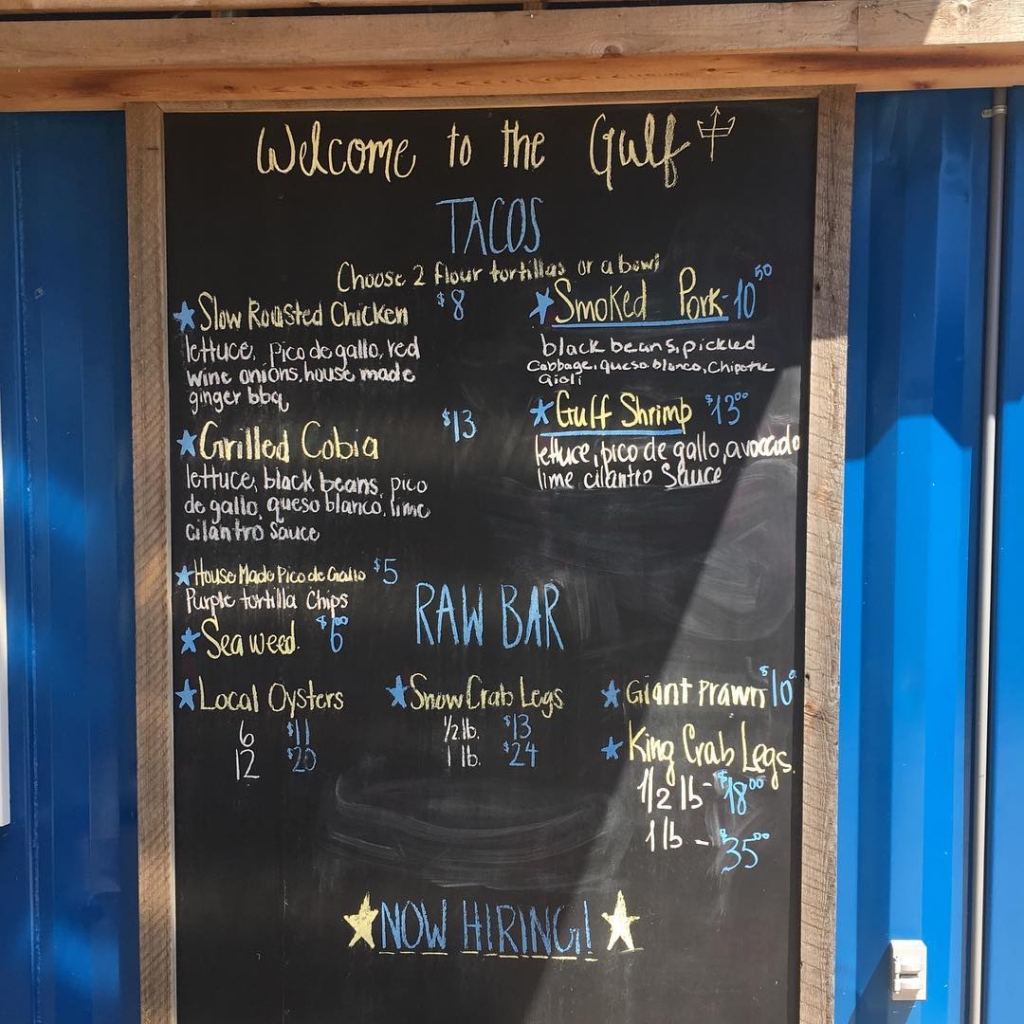 Welcome to the Gulf
TACOS
Choose 2 flour tortillas or a bowl
Slow Roasted Chicken $8
lettuce, pico de gallo, red
wine onions, house made
ginger bbq
Smoked Pork - 10 50
black beans, pickled
Cabbage, queso blanco, Chipotle
aioli
Grilled Cobia $13
lettuce, black beans, pico
de gallo, queso blanco, lime
cilantro Sauce
Gulf Shrimp $13 00
lettuce, pico de gallo, avocado
lime cilantro Sauce
House Made Pico de Gallo $5
Purple tortilla Chips
Sea weed $6 00
RAW BAR
Local Oysters
6 $11
12 $20
Snow Crab Legs
1/2 lb. $13
1 lb. $24
Giant Prawn $10
King Crab Legs
1/2 lb - $18 00
1 lb - $35 00
NOW HIRING!